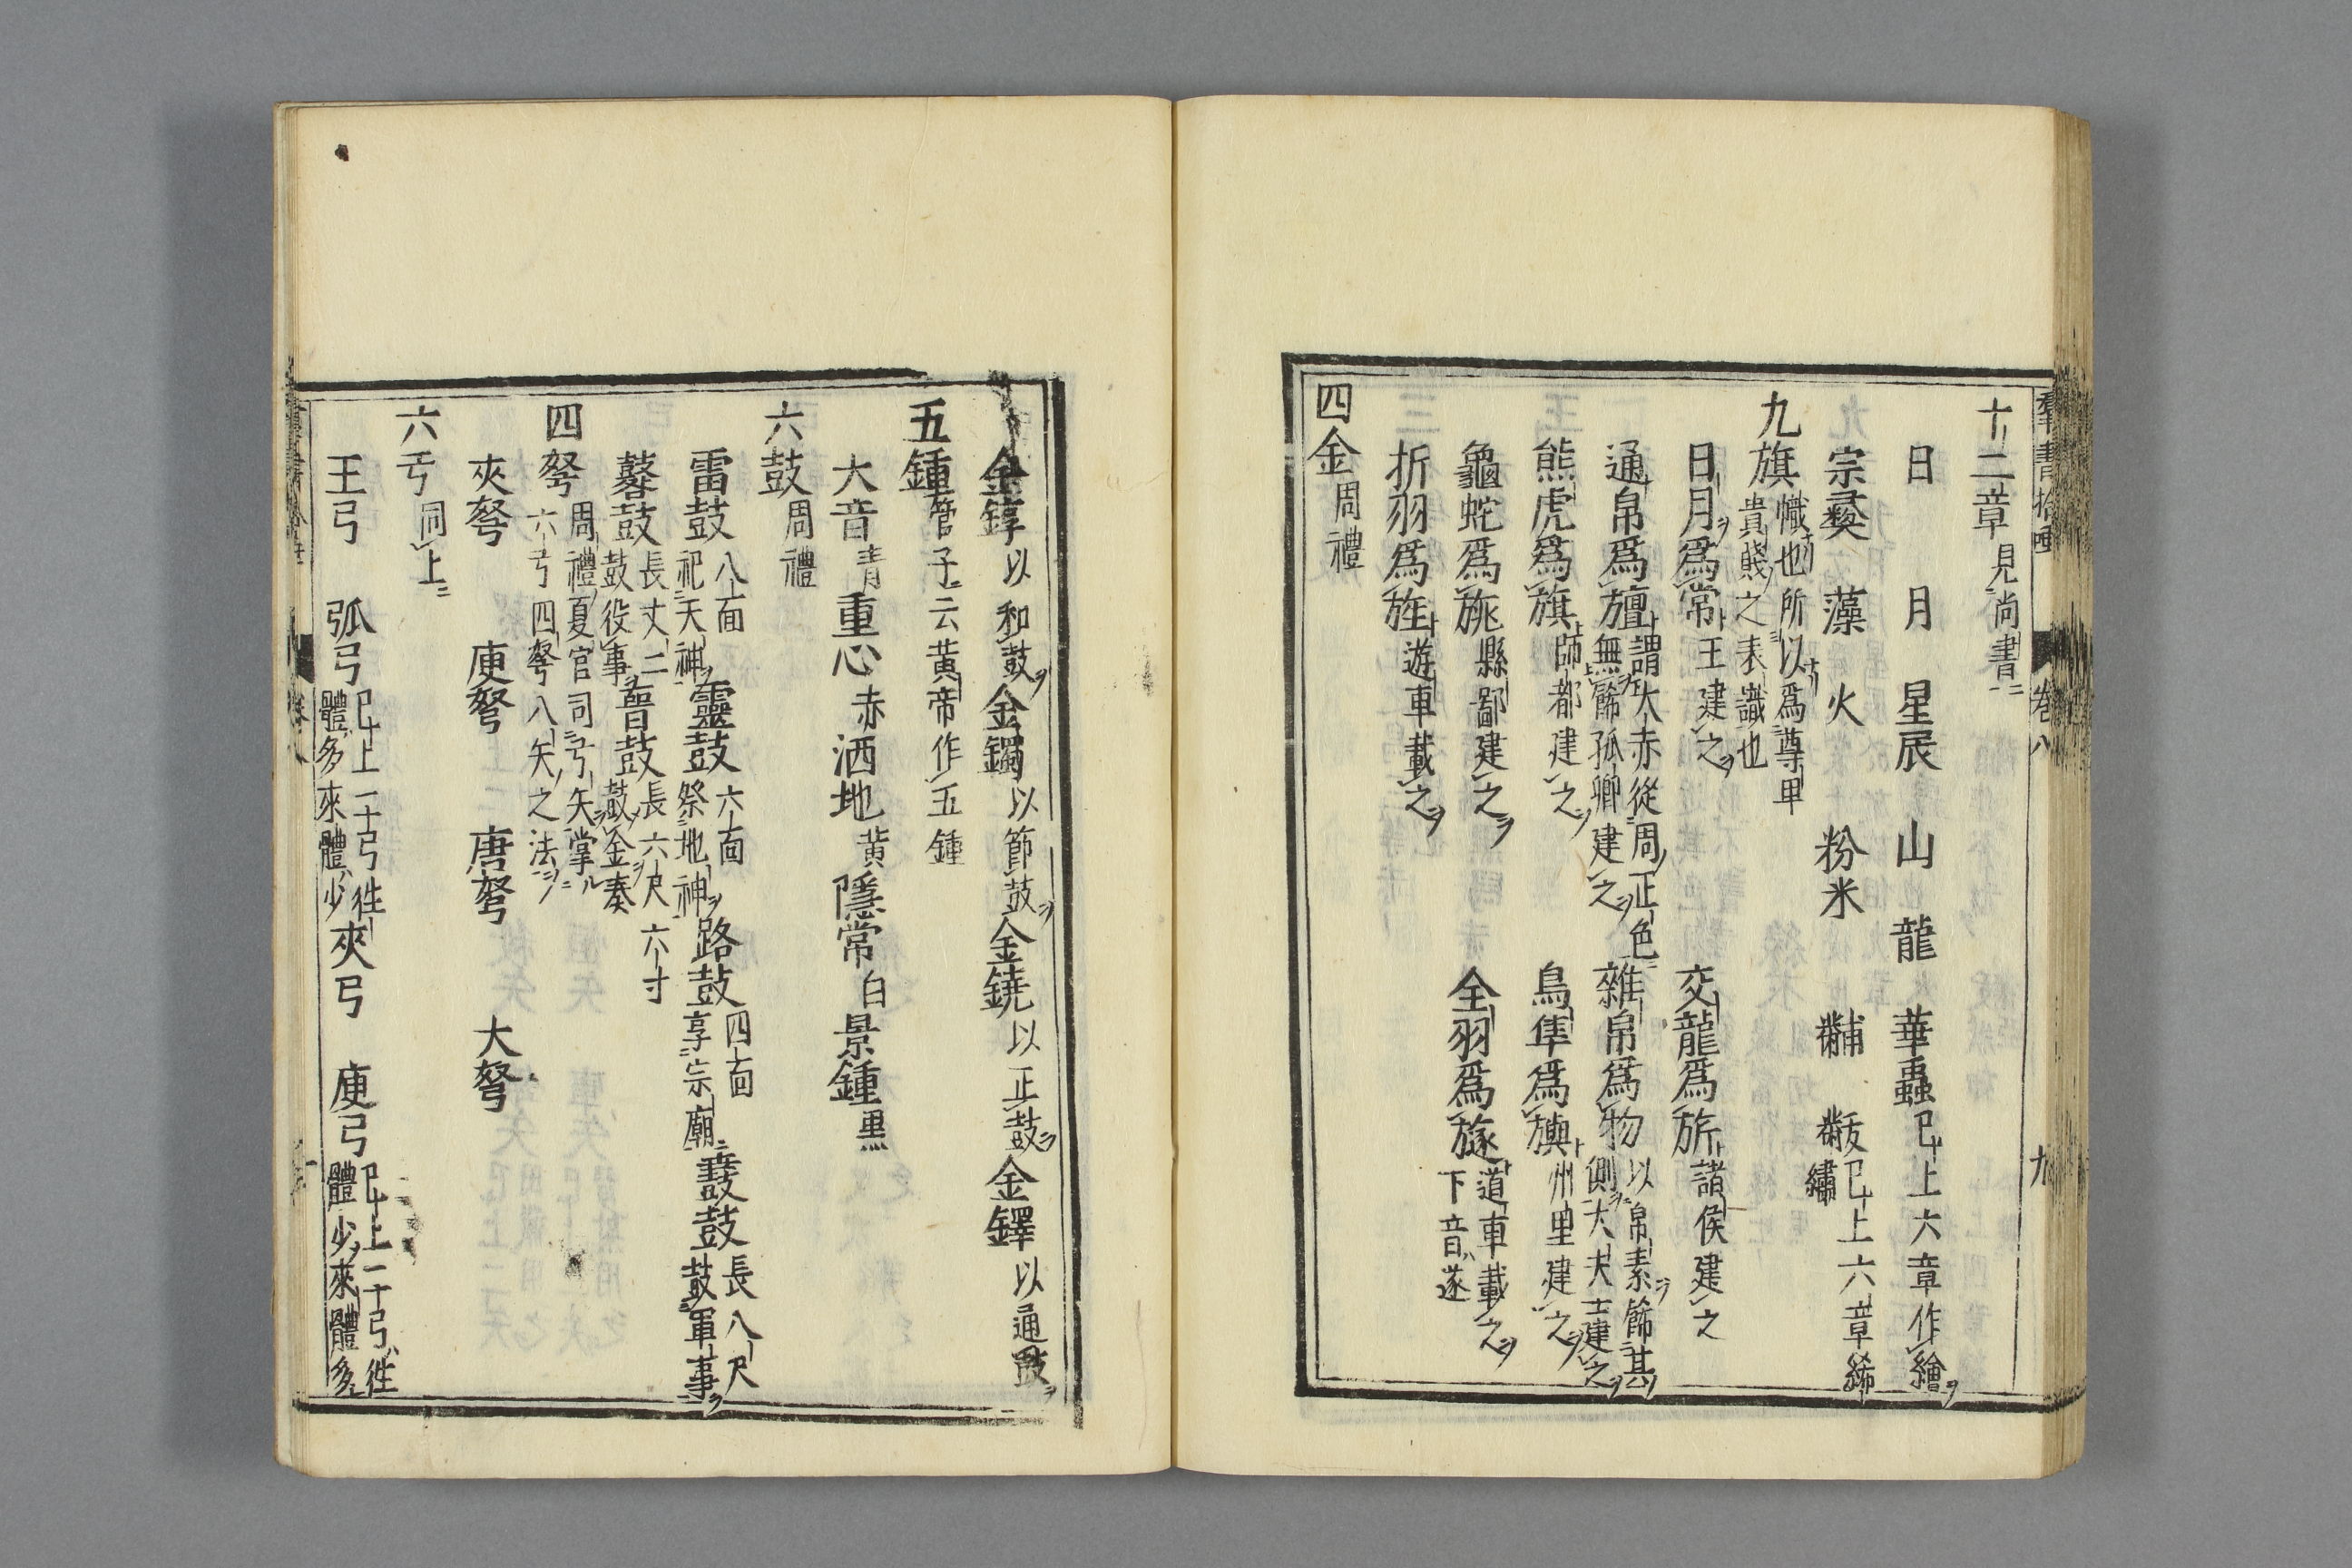 羣書拾唾 卷八 九
十二章 見尚書
日 月 星辰 山 龍 華蟲 已上六章作繪
宗彝 藻 火 粉米 黼 黻 已上六章絺繡
九旗 幟也所以爲尊卑貴賤之表識也
日月爲常 王建之 交龍爲旂 諸侯建之
通帛爲旜 謂大赤從周正色無飾孤卿建之 雜帛爲物 以帛素飾其側大夫士建之
熊虎爲旗 師都建之 鳥隼爲旟 州里建之
龜蛇爲旐 縣鄙建之 全羽爲旞 道車載之下音遂
折羽爲旌 遊車載之
四金 周禮
金錞 以和鼓 金鐲 以節鼓 金鐃 以正鼓 金鐸 以通鼓
五鍾 管子云黃帝作五鍾
大音 青 重心 赤 洒地 黃 隱常 白 景鍾 黑
六鼓 周禮
雷鼓 八面祀天神 靈鼓 六面祭地神 路鼓 四面享宗廟 鼖鼓 長八尺鼓軍事
鼛鼓 長丈二鼓役事 晉鼓 長六尺六寸鼓金奏
四弩 周禮夏官司弓矢掌六弓四弩八矢之法
夾弩 庾弩 唐弩 大弩
六弓 同上
王弓 弧弓 已上二弓徃體多來體少 夾弓 庾弓 已上二弓徃體少來體多